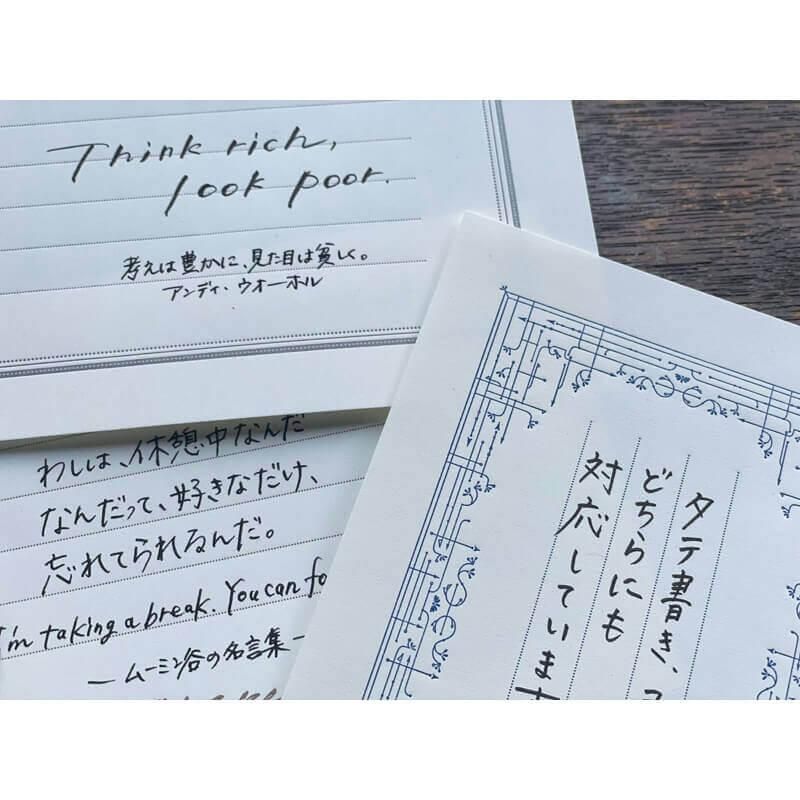 Think rich,
look poor.
考えは豊かに、見た目は貧しく。
アンディ・ウオーホル
わしは、休憩中なんだ
なんだって、好きなだけ、
忘れてられるんだ。
I'm taking a break. You can fo
ームーミン谷の名言集ー
タテ書き、
どちらにも
対応していま